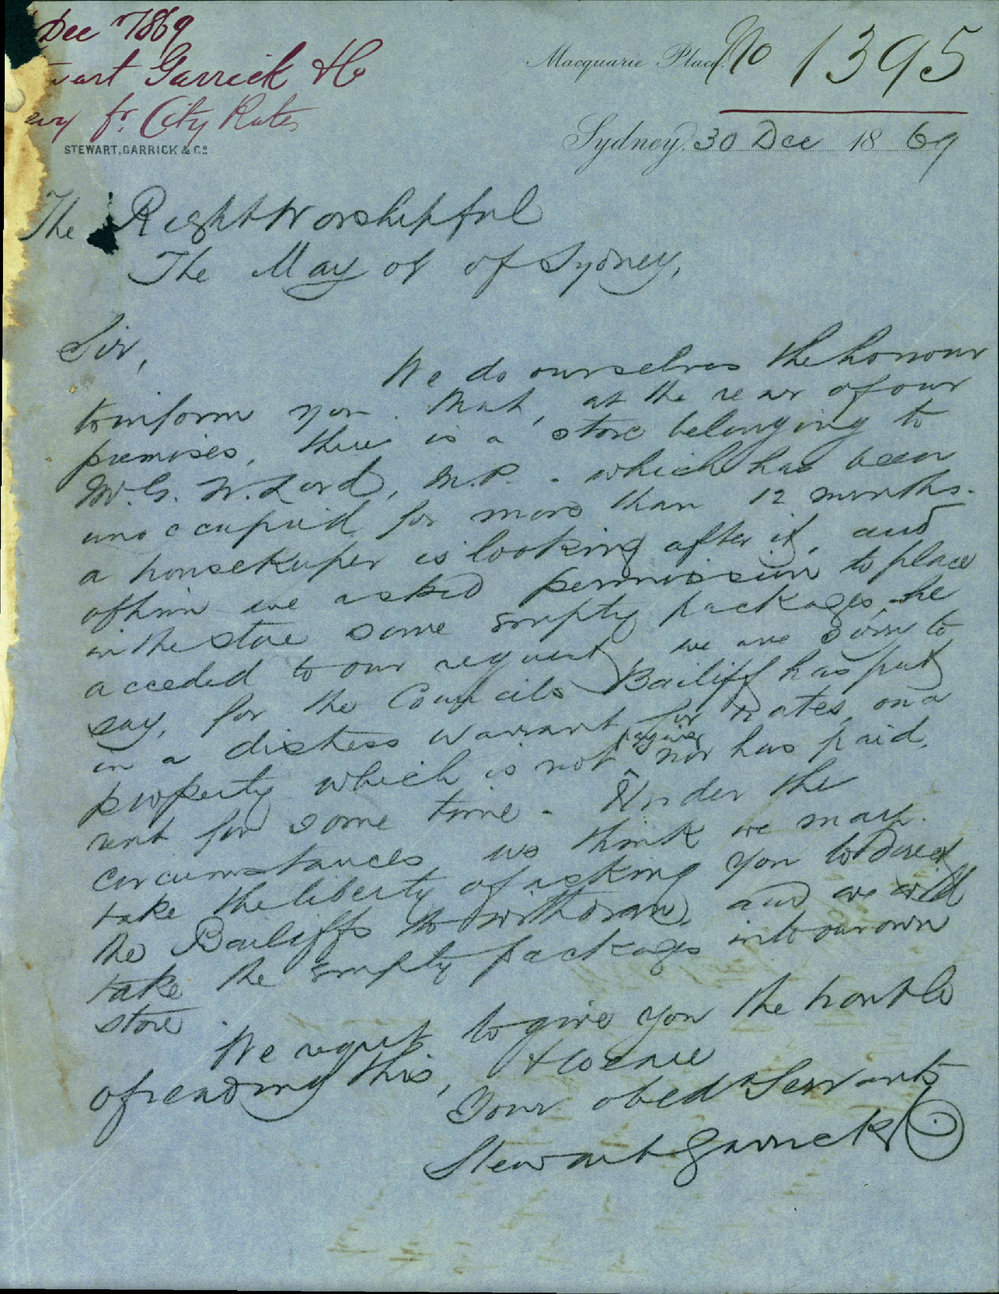 Dec 1869
Stewart Garrick & Co
fr. City Rates
STEWART, GARRICK & Co
Macquarie Place. No 1395
Sydney, 30 Dec 1869
The Right Worshipful
The Mayor of Sydney,
Sir,
We do ourselves the honour
to inform you that, at the rear of our
premises, there is a store belonging to
Mr. G. W. Lord, M.P. - which has been
unoccupied for more than 12 months.
a housekeeper is looking after it, and
of him we asked permission to place
in the store some empty packages, he
acceded to our request, we are sorry to
say, for the Councils Bailiff has put
in a distress warrant for rates, on a
property which is not paying nor has paid,
rent for some time - Under the
circumstances we think we may
take the liberty of asking you to direct
the Bailiffs to withdraw, and we will
take the empty packages into our own
store
We regret to give you the trouble
of reading this, & werme
Your obed Servants
Stewart Garrick & Co